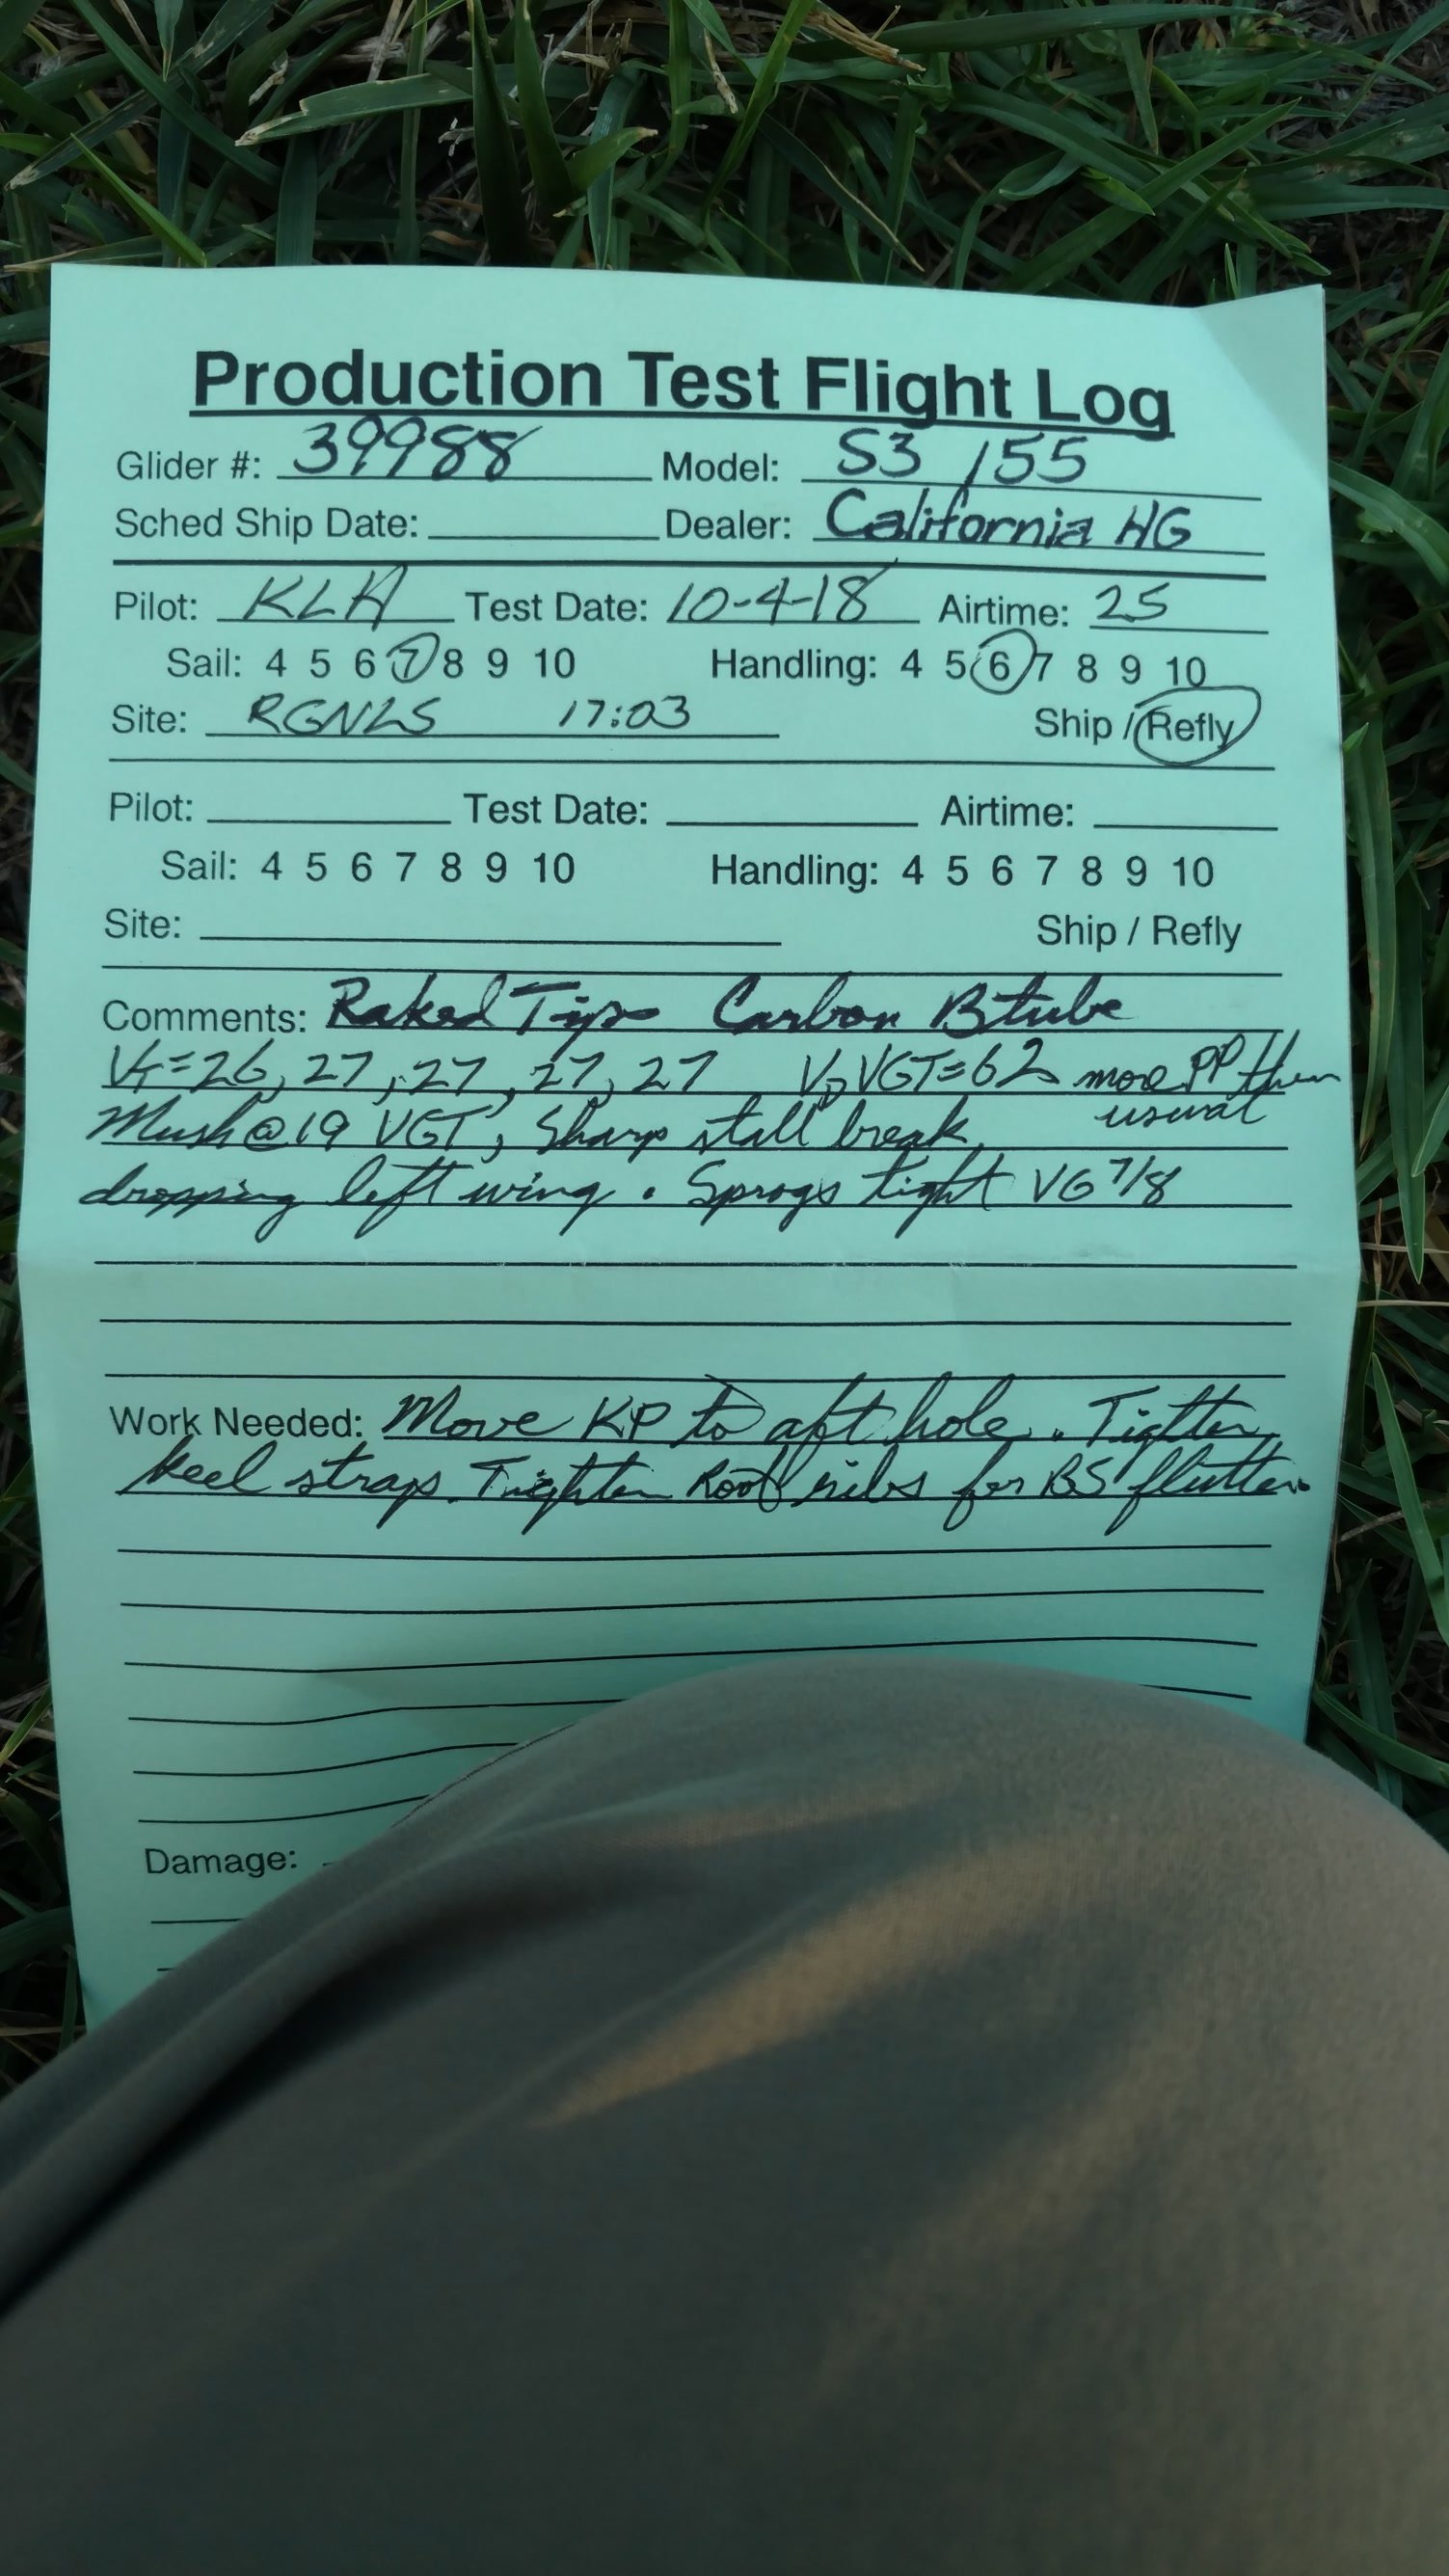 Production Test Flight Log
Glider #: 39988 Model: S3 155
Sched Ship Date: Dealer: California HG
Pilot: KLH Test Date: 10-4-18 Airtime: 25
Sail: 4 5 6 7 8 9 10 Handling: 4 5 6 7 8 9 10
Site: RGNLS 17:03 Ship / Refly
Pilot: Test Date: Airtime:
Sail: 4 5 6 7 8 9 10 Handling: 4 5 6 7 8 9 10
Site: Ship / Refly
Comments: Raked Tips Carbon Btube
VT=26, 27, 27, 27, 27 VD VGT=62 more PP then
usual
Mush@19 VGT, Sharp stall break,
dropping left wing. Sprogs tight VG 7/8
Work Needed: Move KP to aft hole. Tighten
keel straps. Tighten Root ribs for BS flutter.
Damage: